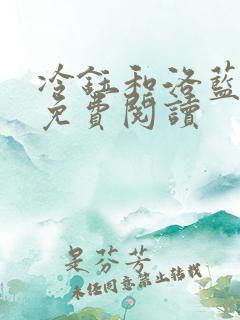 冷鈺和洛藍
免費閱讀
是芬芳
未經同意禁止轉載